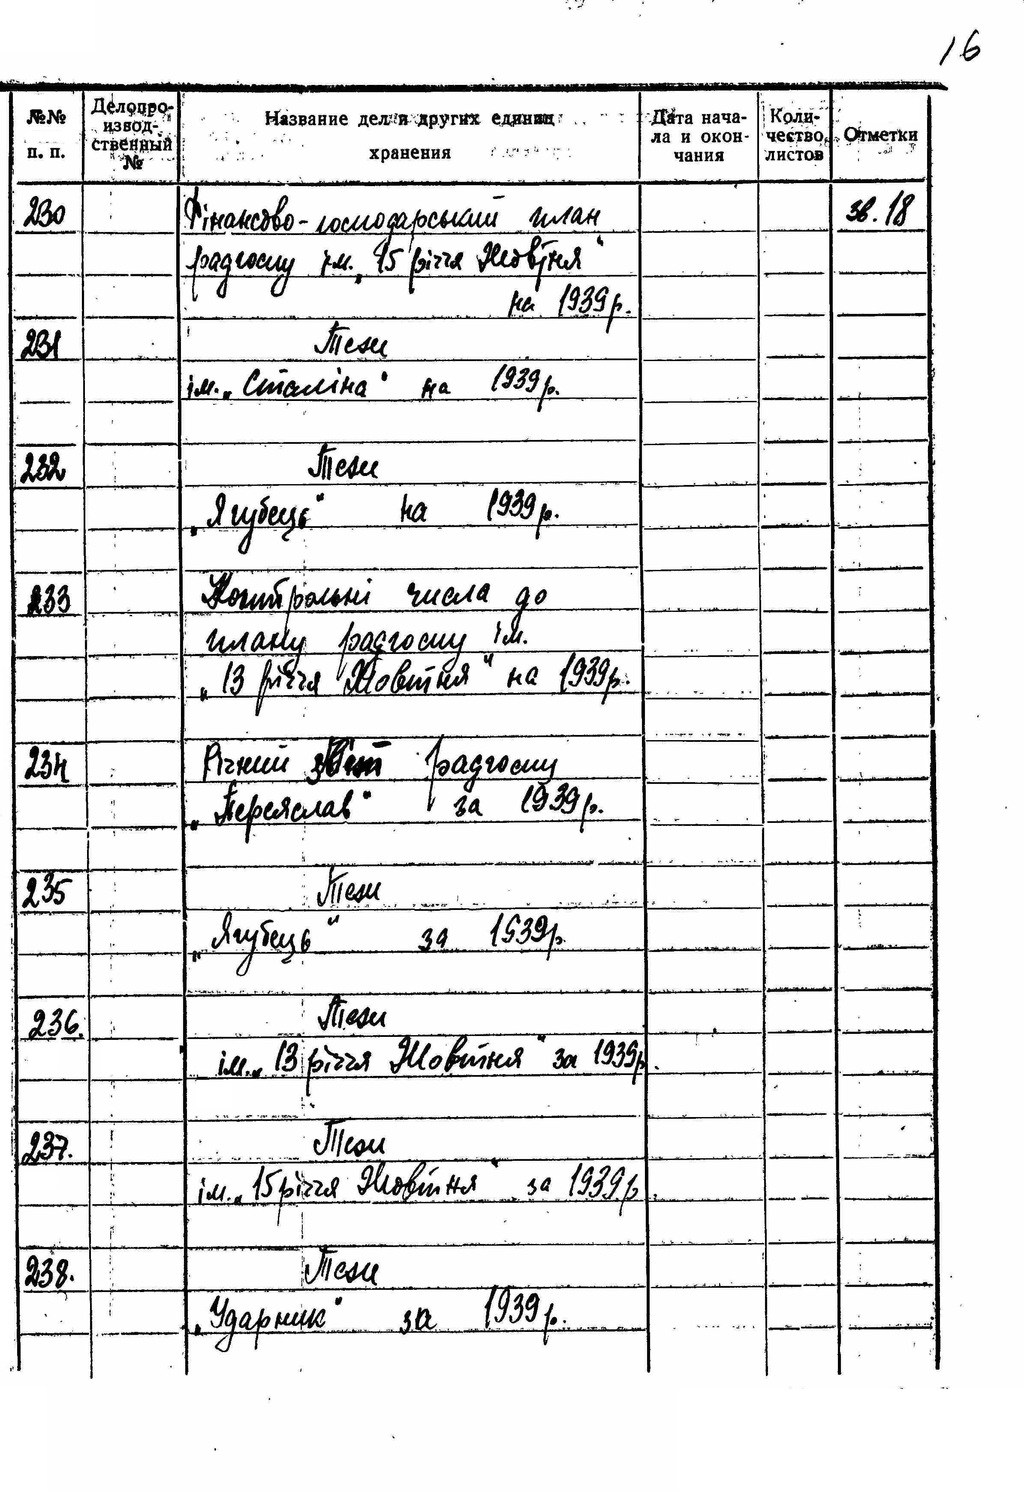 16
№№ п. п.
Делопро-извод-ственный №
Название дел и других единиц хранения
Дата нача-ла и окон-чания
Коли-чество листов
Отметки
230 Фінансово-господарський план зв. 18
радгоспу ім. „15 річчя Жовтня"
на 1939 р.
231 Тези
ім. „Сталіна" на 1939 р.
232 Тези
„Ягубець" на 1939 р.
233 Контрольні числа до
плану радгоспу ім.
„13 річчя Жовтня" на 1939 р.
234 Річний звіт радгоспу
„Переяслав" за 1939 р.
235 Тези
„Ягубець" за 1939 р.
236. Тези
ім. „13 річчя Жовтня" за 1939 р.
237. Тези
ім. „15 річчя Жовтня" за 1939 р.
238. Тези
„Ударник" за 1939 р.